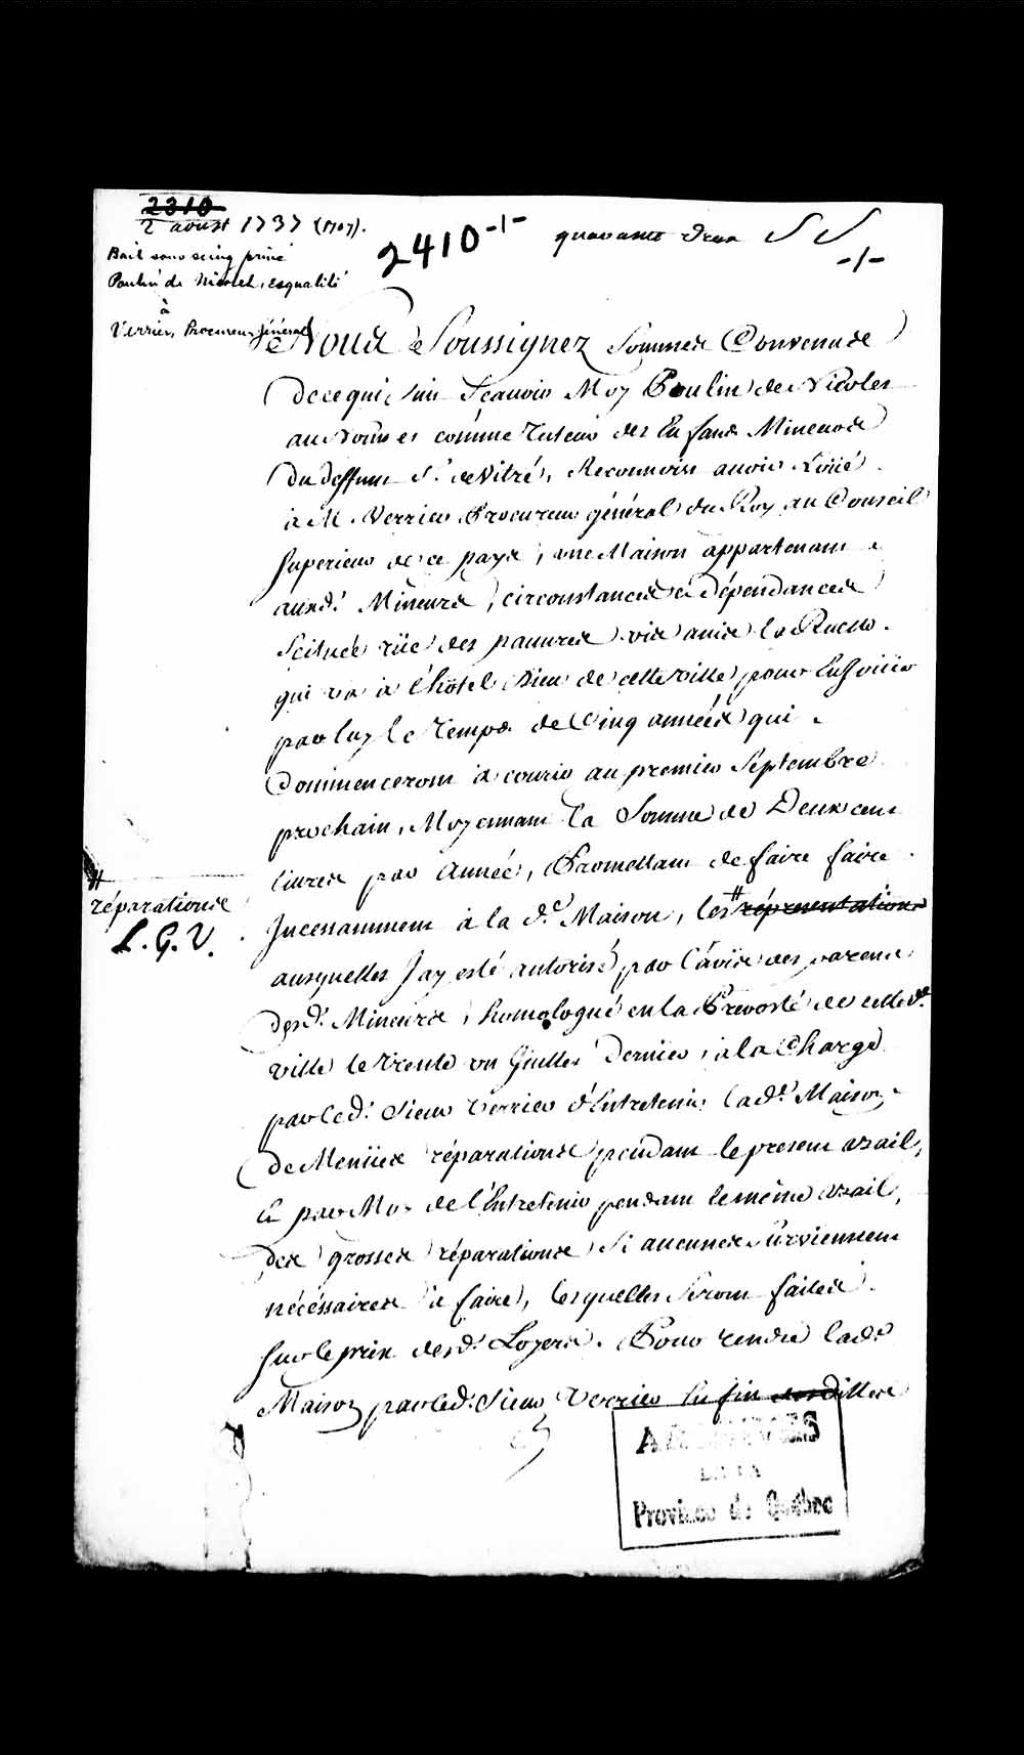 2310
2 aoust 1737 (1707).
Bail sous seing privé
Poulin de Nicolet, esqualité
à
Verrier, Procureur général
2410 -1-
quarante deux
-1-
Nous Soussignez Sommes Convenus
De ce qui suit Sçauoir Moy Poulin de Nicolet
au Nom et comme Tuteur des Enfans Mineurs
Du deffunt Sr. de Vitré, Reconnois auoir Loüé
à M. Verrier Procureur général du Roy au Conseil
Superieur de ce pays, une Maison appartenant
ausd. Mineurs, circonstances et dépendances
Scituée rüe des pauures vis auis la Ruelle
qui va à l'hôtel Dieu de cette ville, pour En joüir
par luy le Temps de Cinq années qui
Commenceront à courir au premier Septembre
prochain, Moyennant la Somme de Deux cent
liures par Année, Promettant de faire faire
Incessamment à la de. Maison, les # réprésentations
# réparations
L. G. V.
ausquelles J'ay esté autorisé par l'avis des parens
desd. Mineurs, homologué en la Prevosté de cette de.
ville le Trente un Juillet Dernier, à la Charge
par led. Sieur Verrier d'Entretenir lade. Maison
De Menües réparations pendant le present Bail,
Et par Moy de l'Entretenir pendant le même Bail,
des grosses réparations Si aucunes Surviennent
nécéssaires à faire, lesquelles Seront faites
Sur le prix desd. Loyers. Pour rendre lade
Maison par led. Sieur Verrier En fin desdittes
ARCHIVES
DE LA
Province de Québec